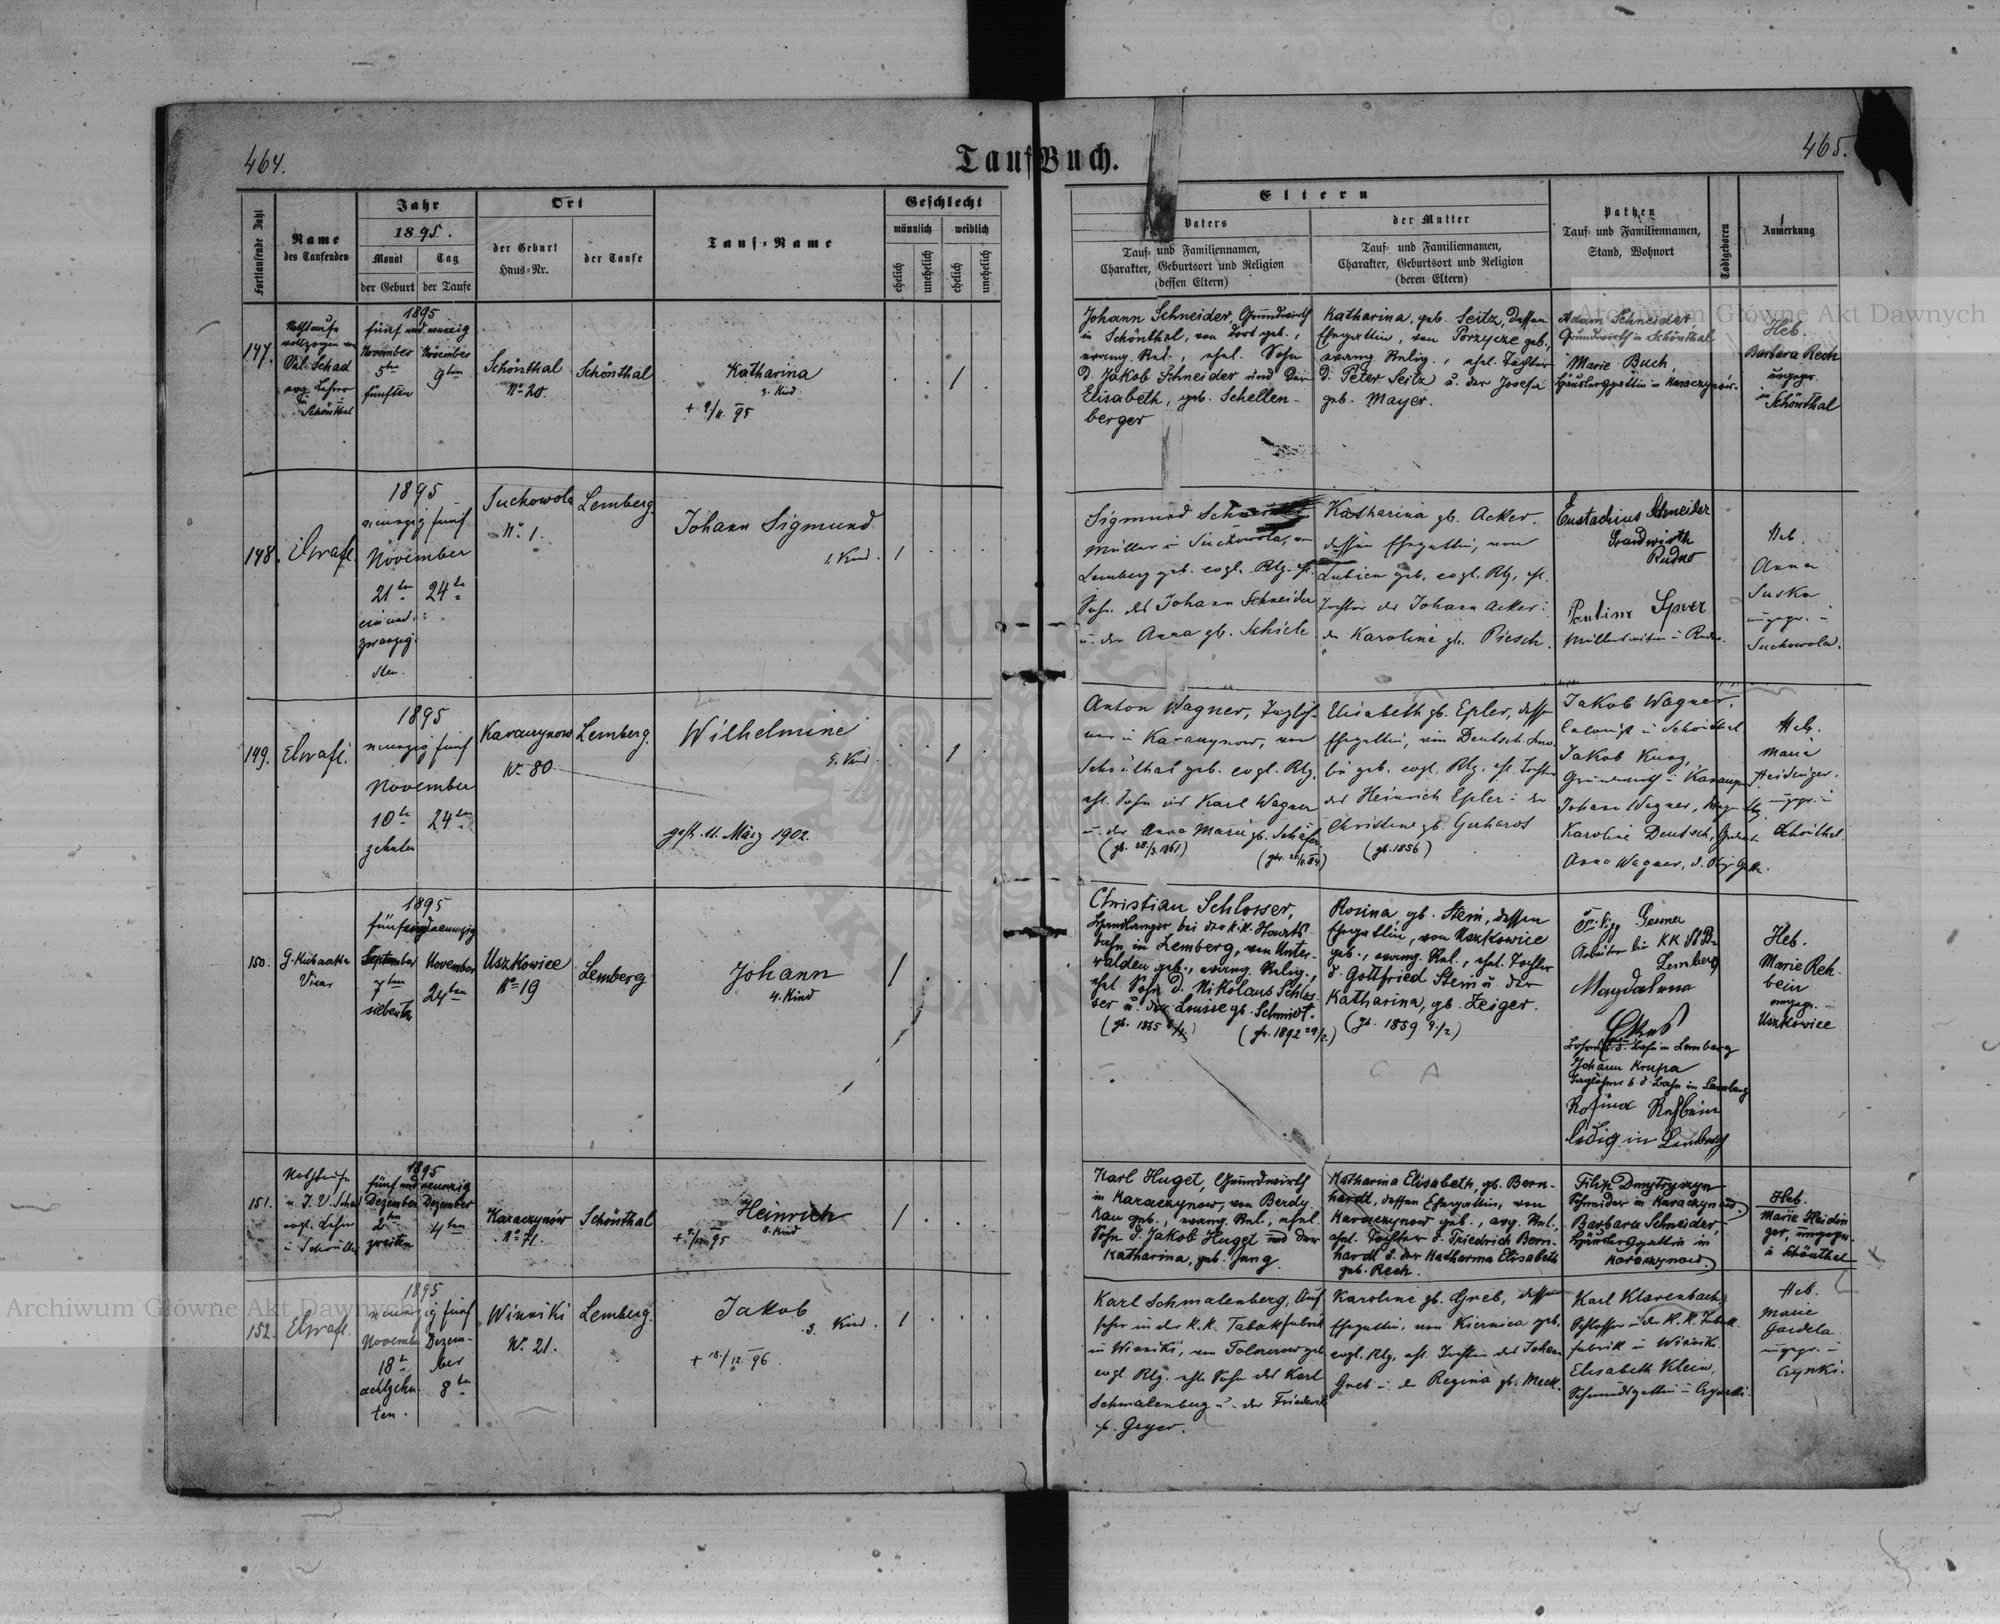 464.
Tauf Buch.
465.
Fortlaufende Zahl
Name
des Taufenden
Jahr
1895.
Monat
Tag
der Geburt
der Taufe
Ort
der Geburt
Haus-Nr.
der Taufe
Tauf-Name
Geschlecht
männlich
weiblich
ehelich
unehelich
ehelich
unehelich
Eltern
Vaters
Tauf- und Familiennamen,
Charakter, Geburtsort und Religion
(dessen Eltern)
der Mutter
Tauf- und Familiennamen,
Charakter, Geburtsort und Religion
(deren Eltern)
Pathen
Tauf- und Familiennamen,
Stand, Wohnort
Todtgeboren
Anmerkung
147.
Nothtaufe
vollzogen von
Val. Schad
evg. Lehrer
in
Schönthal
1895
fünf und neunzig
November
5ten
fünften
November
9ten
Schönthal
No 20.
Schönthal
Katharina
3. Kind
+ 9/11. 95
1
Johann Schneider, Grundwirth
in Schönthal, von dort geb.,
evang. Rel., ehel. Sohn
d. Jakob Schneider und der
Elisabeth, geb. Schellen-
berger
Katharina, geb. Seitz, dessen
Ehegattin, von Porzycze geb.,
evang. Relig., ehel. Tochter
d. Peter Seitz u. der Josefa
geb. Mayer.
Adam Schneider,
Grundwirth in Schönthal
Marie Buch,
Häuslersgattin in Karaczynów.
Heb.
Barbara Rech
ungepr.
in Schönthal
148.
1895
neunzig fünf
November
21ten
24ten
ein und
zwanzig-
sten.
Suchowola
No 1.
Lemberg.
Johann Sigmund
1. Kind.
1
Sigmund Schneider
Müller in Suchowola, von
Lemberg geb. evgl. Rlg. ehl.
Sohn des Johann Schneider
u. der Anna gb. Schick
Katharina gb. Acker,
dessen Ehegattin, von
Lubien geb. evgl. Rlg, ehl.
Tochter des Johann Acker
der Karoline gb. Piesch.
Eustachius Schneider
Grundwirth
Rudno
Pauline Spoer
Heb.
Anna
Suska
ungepr. in
Suchowola.
149.
1895
neunzig fünf
November
10te
24ten
zehnten
Karaczynow
No 80
Lemberg.
Wilhelmine
5. Kind.
gest. 11. März 1902.
1
Anton Wagner, Taglöh-
ner in Karaczynow, von
Schönthal geb. evgl. Rlg,
ehl. Sohn des Karl Wagner
u. der Anna Marie gb. Schäfer.
(gb. 28/3. 1861)
Elisabeth gb. Epler, dessen
Ehegattin, von Deutsch
geb. evgl. Rlg. ehl. Tochter
des Heinrich Epler u. der
Christine gb. Gerhards
(gb. 1856)
Jakob Wagner,
Colonist in Schönthal
Jakob Kurz,
Grundwirth in Karaczynow
Johann Wagner,
Karoline Deutsch,
Anna Wagner,
Heb.
Maria
Heidinger.
ungepr. in
Schönthal
150.
Vicar
1895
fünfundneunzig
September
7ten
siebenten
November
24ten
Uszkowice
No 19
Lemberg
Johann
4. Kind
1
Christian Schlosser,
bei der k.k. Staats-
bahn in Lemberg, von Unter-
walden geb., evang. Relig.,
ehel. Sohn d. Nikolaus Schlos-
ser u. der Louise gb. Schmidt.
Rosina, gb. Stein, dessen
Ehegattin, von Uszkowice
geb., evang. Rel., ehel. Tochter
d. Gottfried Stein u. der
Katharina, gb. Zeiger.
(gb. 1859 9/2)
Arbeiter bei KK St B
Lemberg
Magdalena
Johann Krupa
Taglöhner b. d. Bahn in Lemberg
Rosina Rehbein
ledig in Lemberg
Heb.
Marie Reh-
bein
ungepr. in
Uszkowice
151.
Nothtaufe
1895
fünf und neunzig
Dezember
2ten
zweiten
Dezember
4ten
Karaczynów
No 71.
Schönthal
Heinrich
8. Kind
1
Karl Huget, Grundwirth
in Karaczynow, von Berdy-
kau geb., evang. Rel., ehel.
Sohn d. Jakob Huget und der
Katharina, geb. Jung.
Katharina Elisabeth, gb. Bern-
hardt, dessen Ehegattin, von
Karaczynow geb., evg. Rel.,
ehel. Tochter d. Friedrich Bern-
hardt u. der Katharina Elisabeth
geb. Rech.
Filip Dmytryszyn
Schneider in Karaczynow.
Barbara Schneider,
Häuslersgattin in
Karaczynow.
Heb.
Marie Heidin
ger, ungepr.
in Schönthal
152.
1895
neunzig fünf
November
18te
achtzehn-
ten.
Dezem-
ber
8ten
Winniki
No 21.
Lemberg.
Jakob
3. Kind.
+ 18./12. 96.
1
Karl Schmalenberg, Auf-
seher in der k.k. Tabakfabrik
in Winniki, von
evgl. Rlg. ehl. Sohn des Karl
Schmalenberg u. der Friederike
gb. Geyer.
Karoline gb. Greb, dessen
Ehegattin, von Kiernica geb.
evgl. Rlg, ehl. Tochter des Johann
Greb u. der Regina gb. Meck.
Karl Klarenbach,
Schlosser in der K.K. Tabak-
fabrik in Winniki
Elisabeth Klein,
Heb.
Marie
ungepr. in
Archiwum Główne Akt Dawnych
Archiwum Główne Akt Dawnych